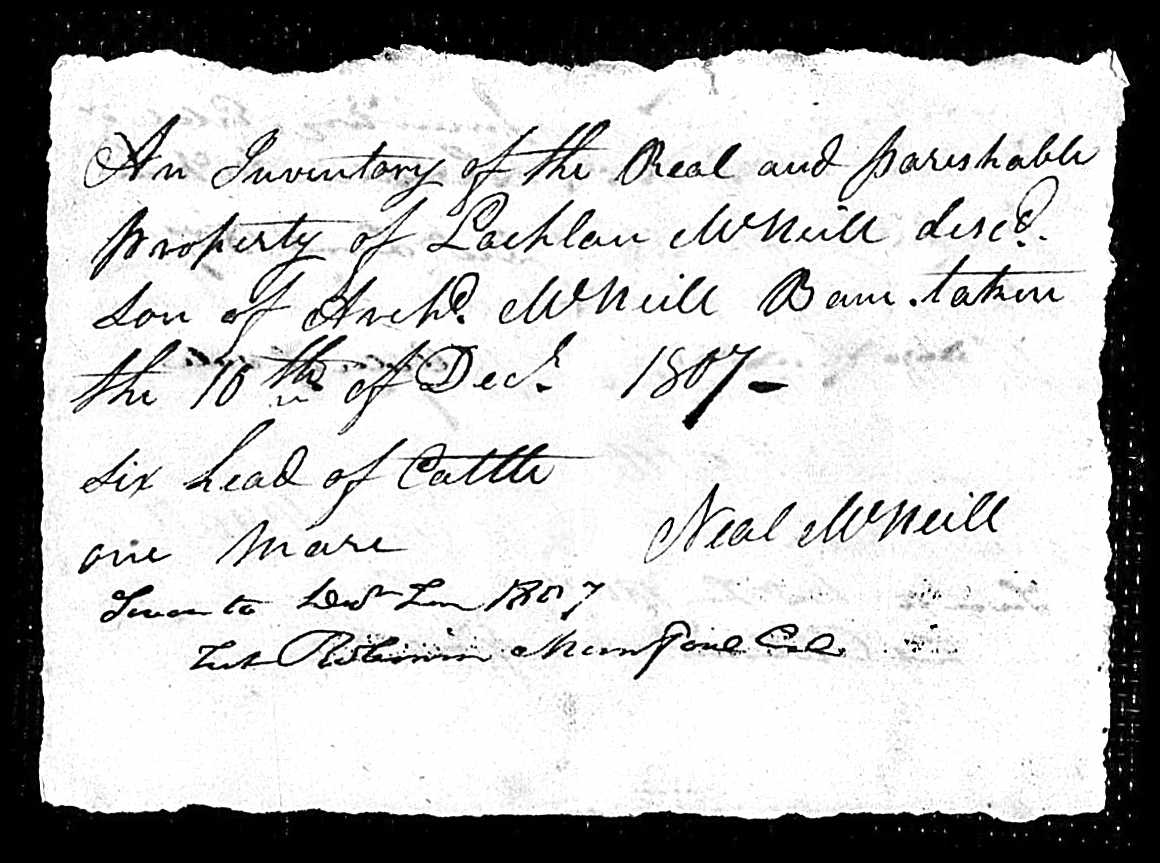 An Inventory of the Real and parishable
property of Lachlan McNeill desed.
Son of Archd. McNeill Bam. taken
the 10th of Decr. 1807 -
Six head of Cattle
one Mare
Neal McNeill
Sworn to Decr 1807
Test Robinson Mumford C.C.